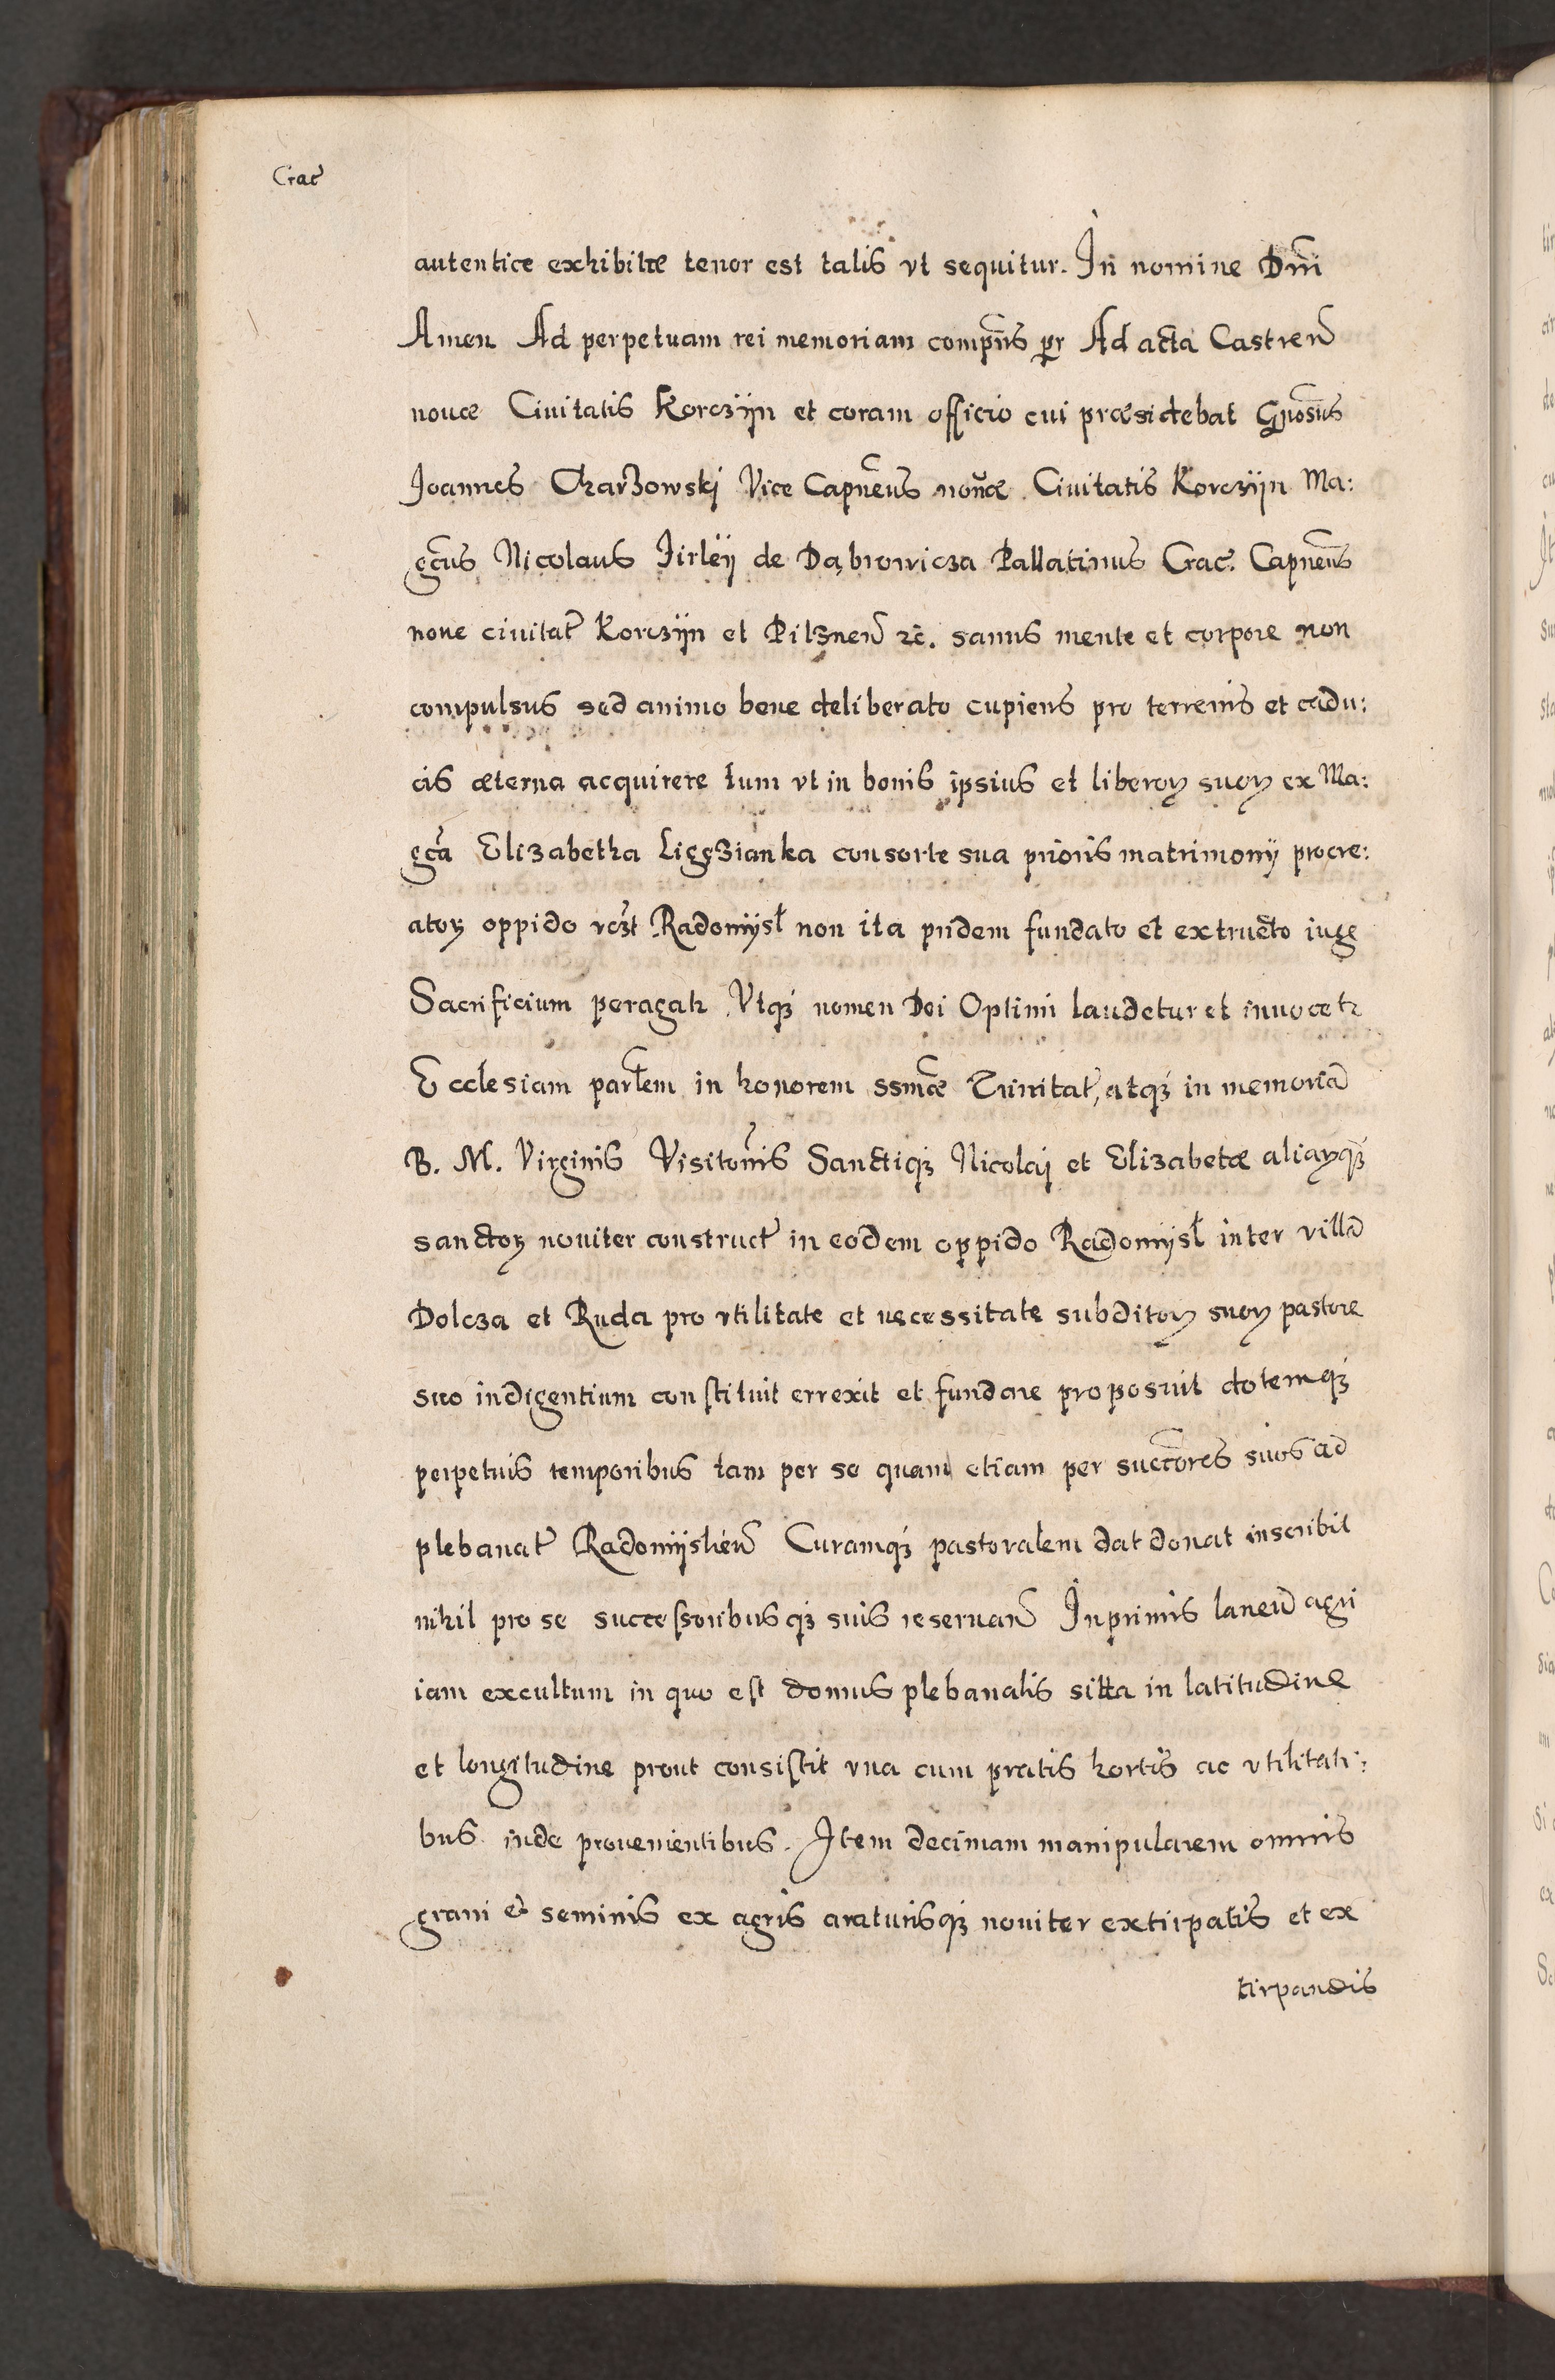 Crac̃
autentice exhibitæ tenor est talis vt sequitur. In nomine Dñi
Amen Ad perpetuam rei memoriam compñs pr̃ Ad acta Castreñ
nouæ Ciuitatis Korczÿn et coram officio cui præsidebat Gñosus
Joannes Charzowskj Vice Capñeus nouæ Ciuitatis Korczÿn Ma:
gcũs Nicolaus Firleÿ de Dąbrowicza Pallatinus Crac̃. Capñeus
noue ciuitat̃ Korczÿn et Pilzneñ ꝛc̃. sanus mente et corpore non
compulsus sed animo bene deliberato cupiens pro terrenis et cadu:
cis æterna acquirere tum vt in bonis ipsius et liberoꝝ suoꝝ ex Ma:
gcã Elizabetha Ligęzianka consorte sua prioris matrimonÿ procre:
atoꝝ oppido vcz̃t Radomÿsł non ita pridem fundato et extructo iuge
Sacrificium peragatr Vtqꝫ nomen Dei Optimi laudetur et inuocetr
Ecclesiam parlem̃ in honorem ssmæ̃ Trinitat̃, atqꝫ in memoriã
B. M. Virginis Visitoñis Sanctiqꝫ Nicolaj et Elizabetæ aliaꝝqꝫ
sanctoꝝ nouiter construct̃ in eodem oppido Radomÿsł inter villã
Dolcza et Ruda pro vtilitate et necessitate subditoꝝ suoꝝ pastore
suo indigentium constituit errexit et fundare proposuit dotemqꝫ
perpetuis temporibus tam per se quam etiam per succores̃ suos ad
plebanat̃ Radomÿslieñ Curamqꝫ pastoralem dat donat inscribit
nihil pro se successoribusqꝫ suis reseruañ Inprimis laneũ agri
iam excultum in quo est domus plebanalis sitta in latitudine
et longitudine prout consistit vna cum pratis hortis ac vtilitati:
bus inde prouenientibus. Item decimam manipularem omnis
grani et seminis ex agris araturisqꝫ nouiter extirpatis et ex
tirpandis